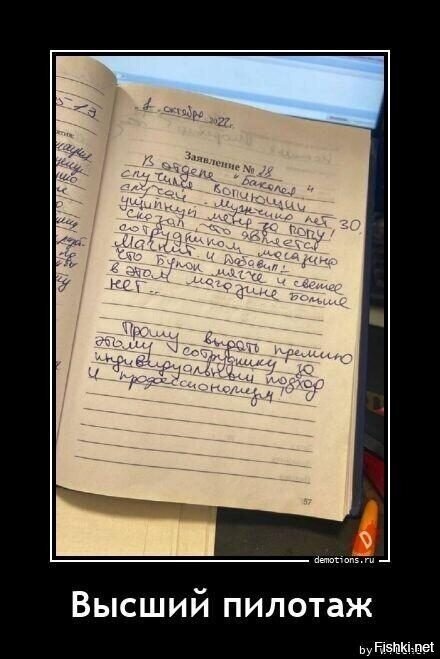 1 октября 2022г.
Заявление № 28
В отделе "Бакалея"
случился вопиющий
случай. Мужчина лет 30,
ущипнул меня за попу!
сказал что является
сотрудником магазина
Магнит и добавил!
что булок мягче и свежее
в этом магазине больше
нет..
Прошу выдать премию
этому сотруднику за
индивидуальный подход
и профессионализм!
57
demotions.ru
Высший пилотаж
Fishki.net
by